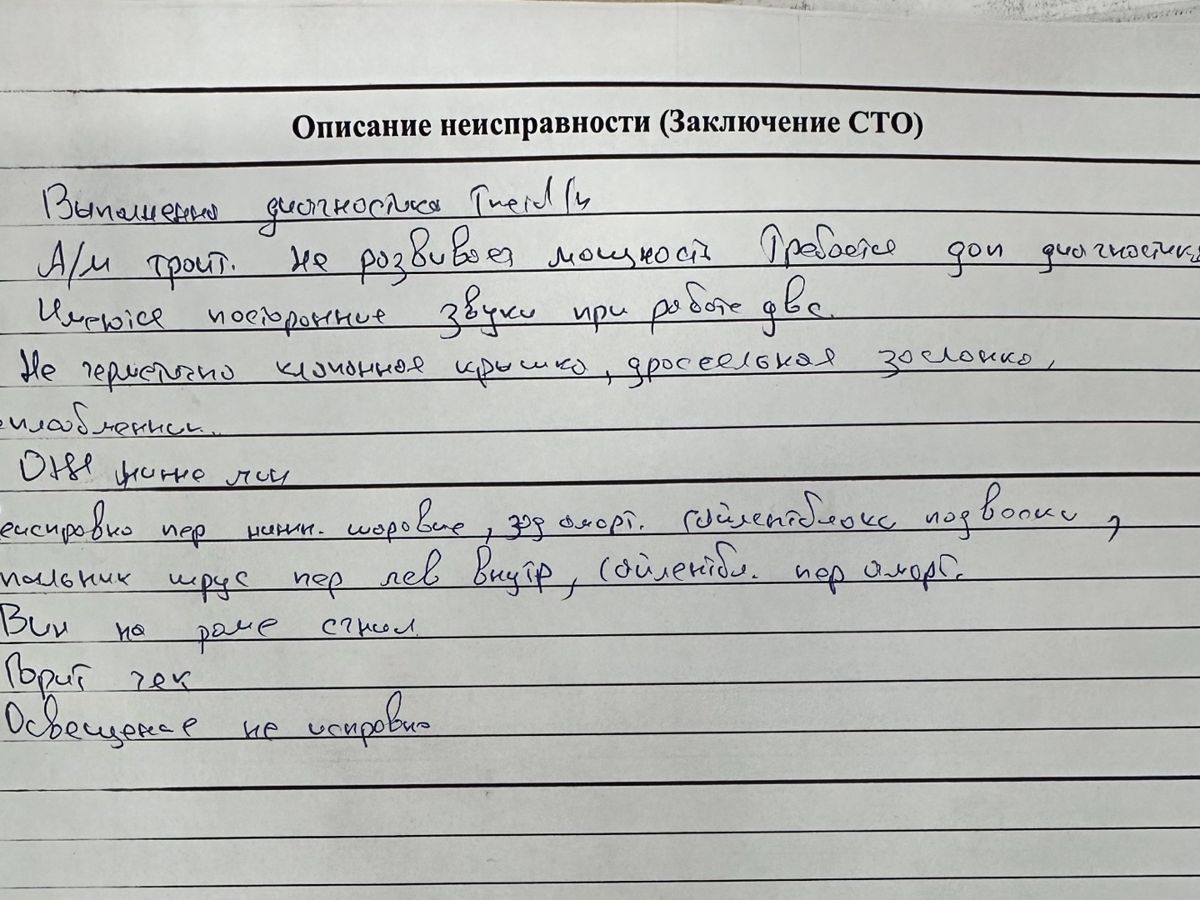 Описание неисправности (Заключение СТО)
Выполненна диагностика
А/м троит. Не развивает мощность Требается доп диагностика
Имеются посторонние звуки при работе двс.
Не герметично клапонная крышка, дроссельная заслонка,
еплообменник.
ОЖ ниже min
еисправно пер нижн. шаровые, зад аморт. Сайлентблокс подвоски,
пыльник шрус пер лев внутр, Сайлентбл. пер аморт.
Вин на раме сгнил
Горит чек
Освещение не исправно